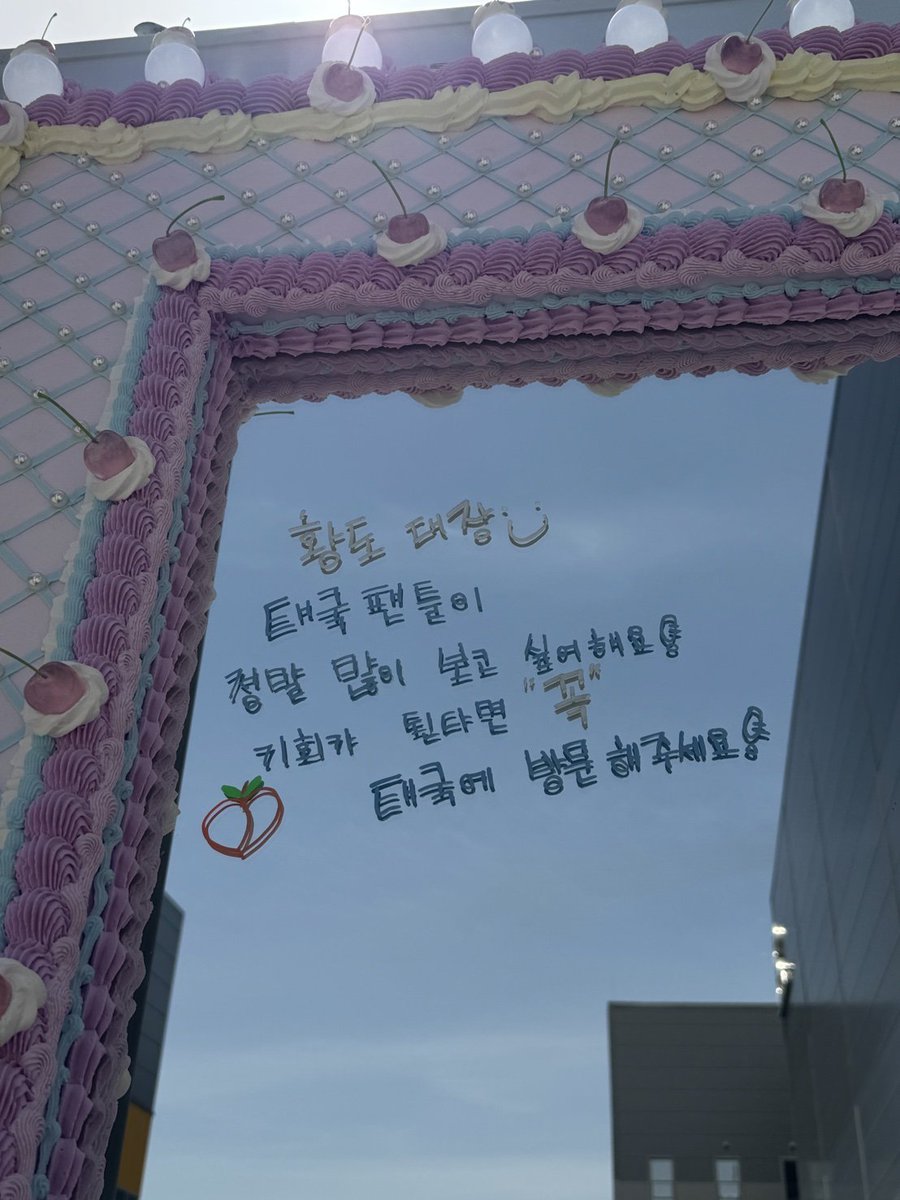 황도 대장
태국 팬들이
정말 많이 보고 싶어해요
기회가 된다면 "꼭"
태국에 방문해주세요